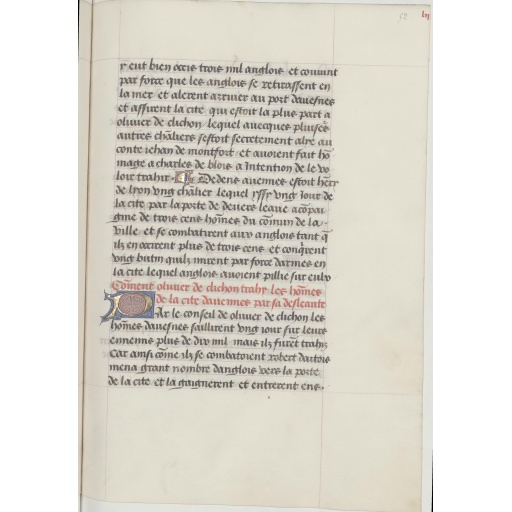 y eut bien occis trois mil anglois et conuint
par force que les anglois se retirassent en
la mer et alerent arriuer au port dauesnes
et assirent la cite qui estoit la plus part a
oliuier de clichon lequel auecques pluisrs
autres chlrs sestoit secretement alye au
conte iehan de montfort et auoient fait hō
mage a charles de blois a intention de le vo
loir trahir Dedens auennes estoit herry
de lyon vng chlr lequel yssy vng iour de
la cite par la porte de deuers leaue acōpai
gnie de trois cens hōmes du cōmun de la
ville et se combatirent aux anglois tant q̄
ilz en occirent plus de trois cens et conqrent
vng butin quilz mirent par force darmes en
la cite lequel anglois auoient pillie sur eulx
Cōment oliuier de clichon trahy les hōmes
de la cite dauennes par sa desleaute
PAr le conseil de oliuier de clichon les
hōmes dauesnes saillirent vng iour sur leurs
ennemis plus de dix mil mais ilz furēt trahiz
Car ainsi cōme ilz se combatoient robert dartois
mena grant nombre danglois vers la porte
de la cite et la gaignerent et entrerent ens